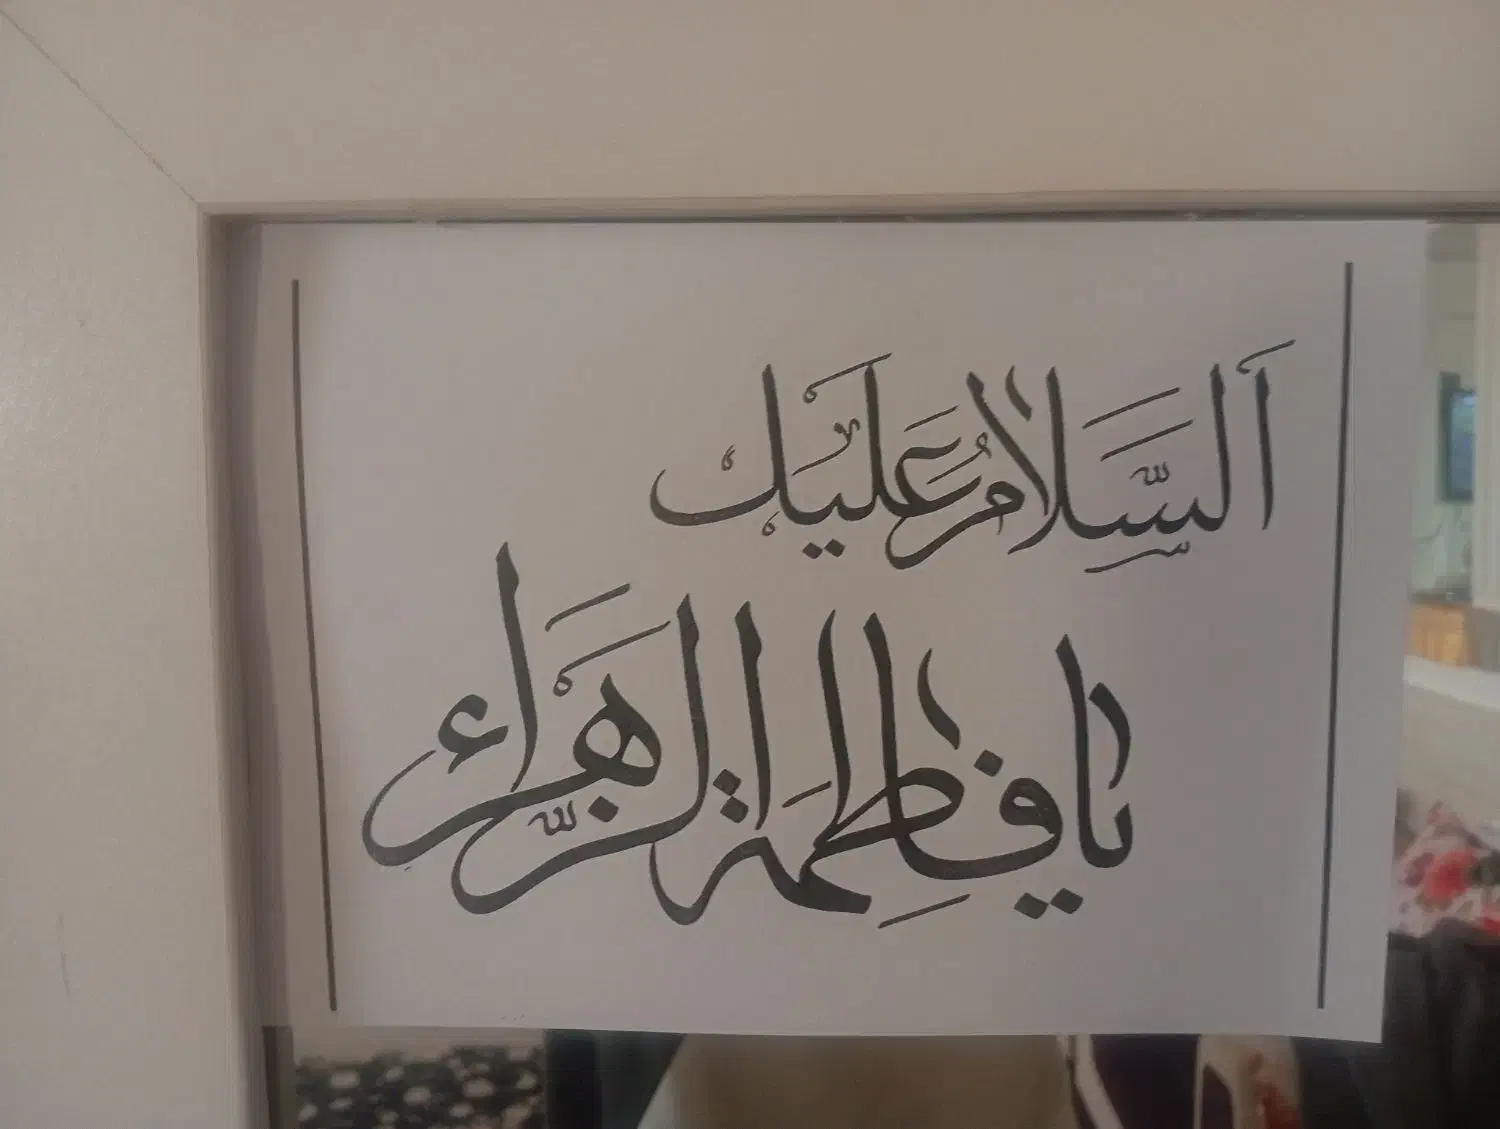 اَلسَّلامُ عَلَیك
یا فاطِمَة الزَّهراء